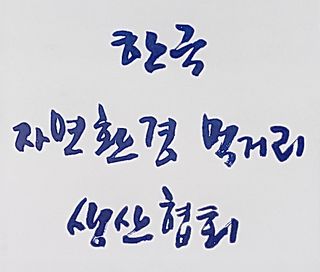 한국
자연환경 먹거리
생산협회